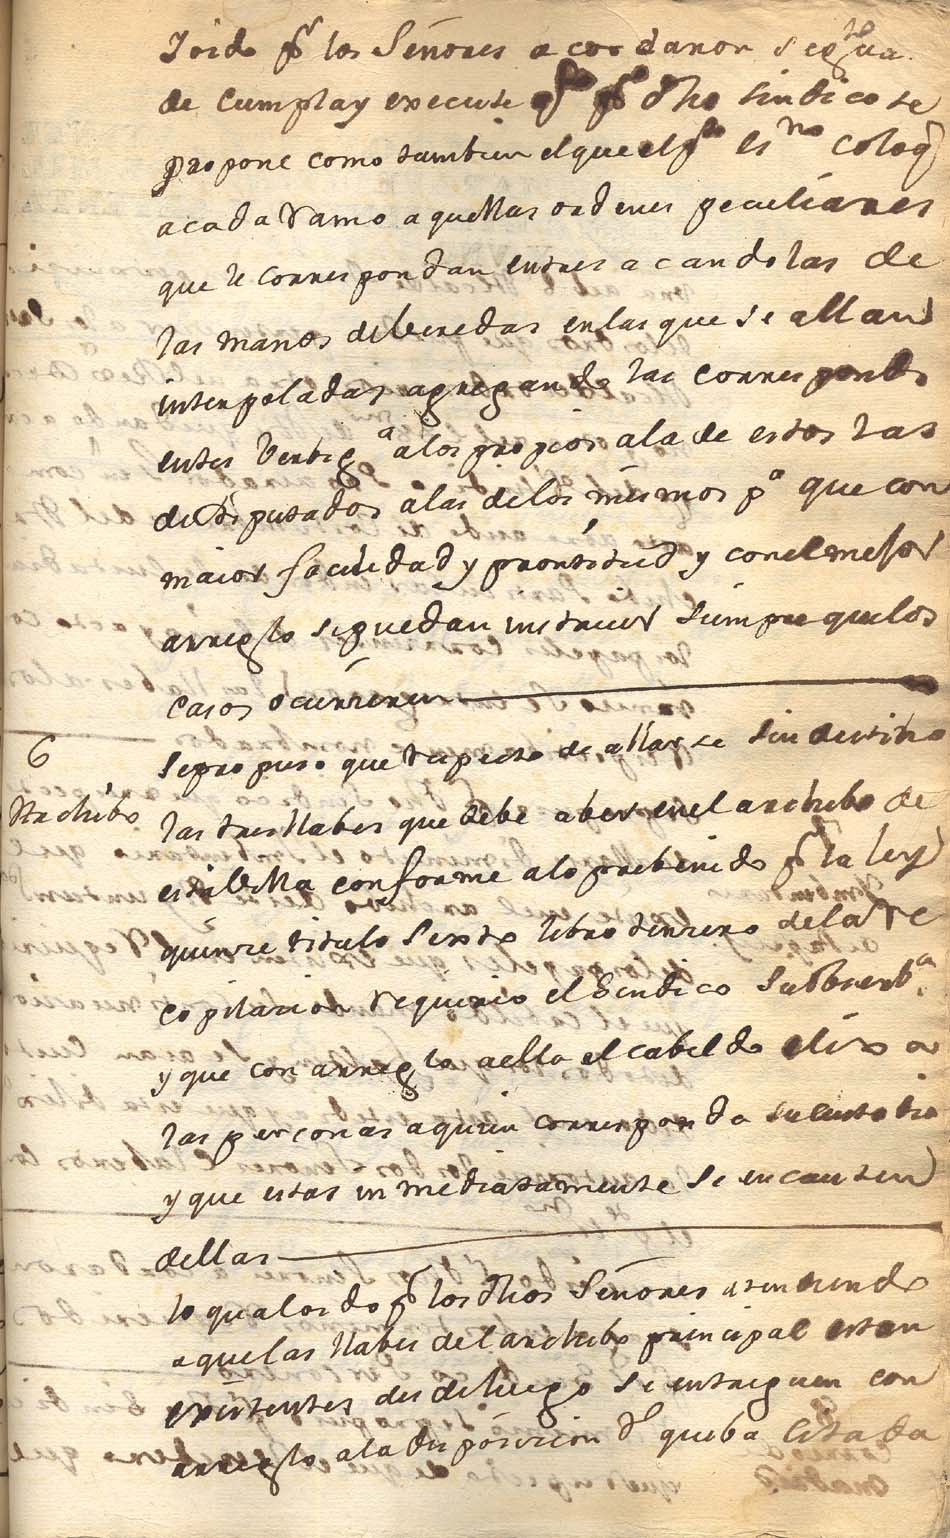 I oido pr los Señores acordaron se
de cumpla y execute dho sindico se
propone como tambien el que el pte esno coloq
a cada ramo aquellas ordenes peculiares
que le correspondan entresacandolas de
las manos de beredas en las que se allan
interpeladas agregando las correspondi
entes berbig a a los propios a la de estos las
de diputados a las de los mismos pa que con
maior facilidad y prontitud y con el mejor
arreglo se puedan instruir siempre que los
casos ocurrieren
6
Archibo
Se propuso que respecto de allarse sin destino
las tres llabes que debe aber en el archibo de
esta billa conforme a lo prebenido pr la ley
quince titulo sexto libro tercero de la re
copilacion requirio el Sindico su obserba
y que con arreglo a ella el cabildo elixa
las personas a quien corresponda su custodia
y que estas inmediatamente se encauten
dellas
lo qual oido pr los dhos Señores atendiendo
a que las llabes del archibo principal estan
existentes desde luego se entreguen con
arreglo a la disposicion que ba citada